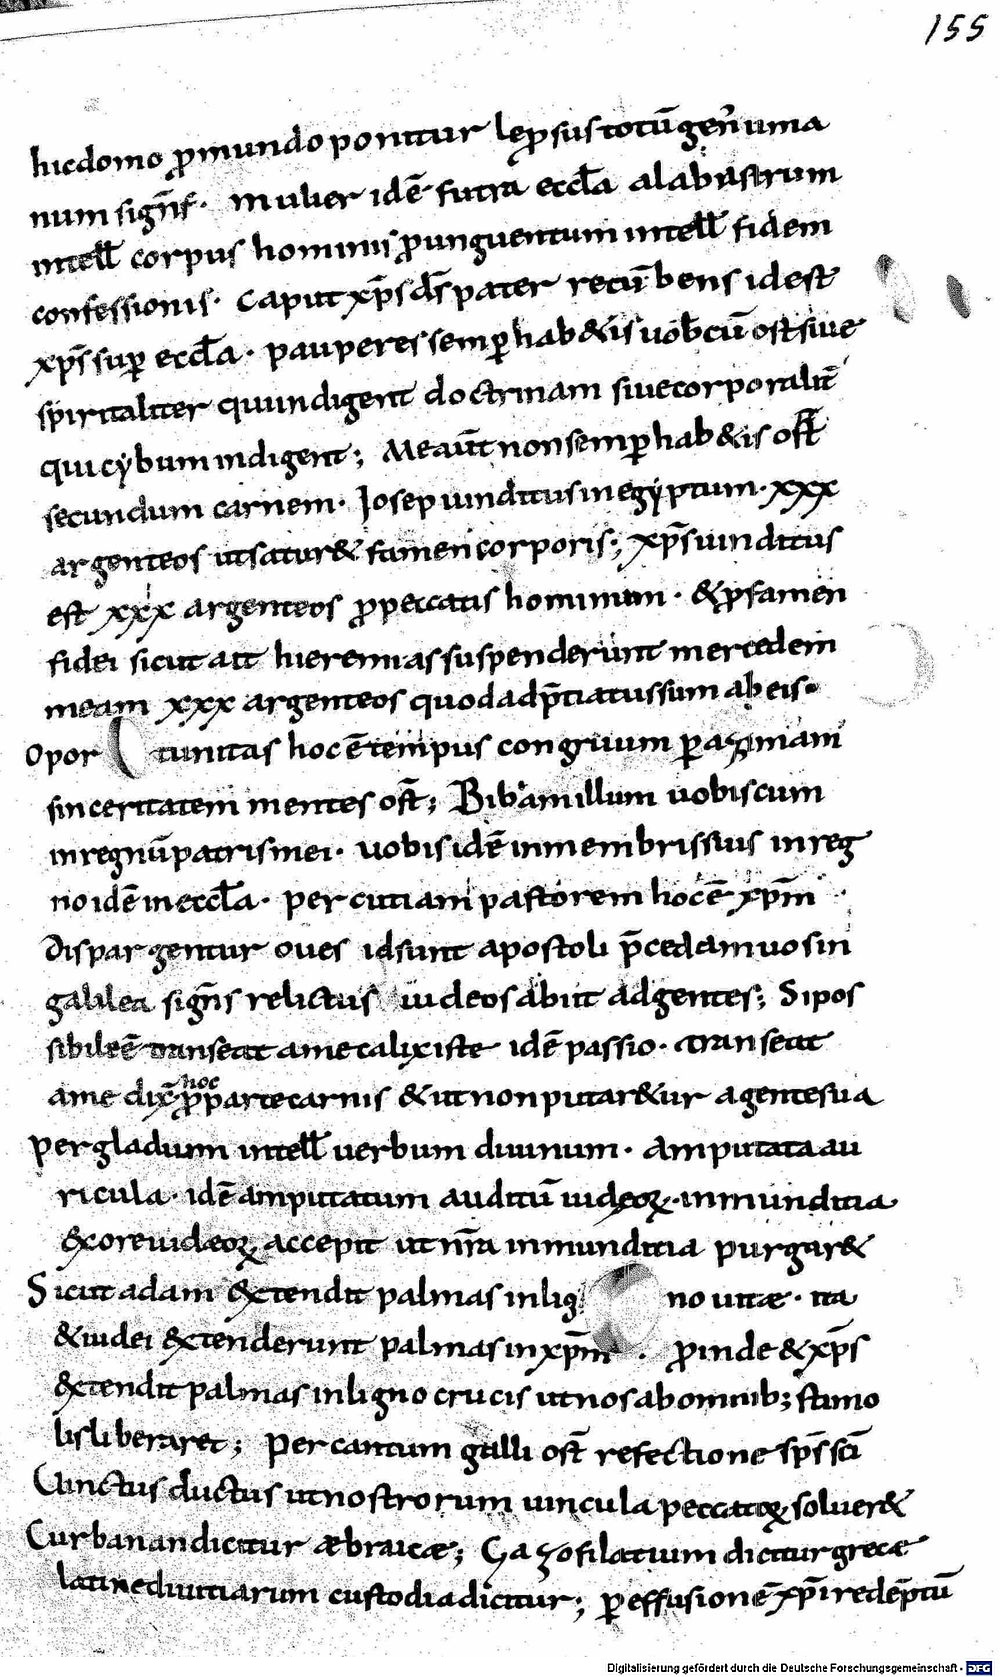 155
hic domo p̄ mundo ponitur lep̄sus totū gen̄ uma
num sign̄f· mulier idē futra eccl̄a alabastrum
intell̄ corpus hominis p̄ unguentum intell̄ fidem
confessionis· caput xp̄s d̄s pater recūbens id est
xp̄s sup̄ eccl̄a· pauperes semp̄ hab&is uobcū ost̄ siue
spiritaliter qui indigent doctrinam siue corporalit̄
qui cybum indigent; Me aūt non semp̄ hab&is ost̄
secundum carnem· Iosep uinditus in egyptum· xxx
argenteos ut satur& famen corporis; xp̄s uinditus
est xxx argenteos p̄ peccatis hominum· & p̄ famen
fidei sicut ait hieremias suspenderunt mercedem
meam xxx argenteos quod adp̄tiatus sum ab eis·
Opor tunitas hoc ē tempus congruum p̄ azimam
sinceritatem mentes ost̄; Bibam illum uobiscum
in regnū patris mei· uobis idē in membris suis in reg
no idē in eccl̄a· percutiam pastorem hoc ē xp̄m
Dispargentur oues id sunt apostoli p̄cedam uos in
galilea sign̄s relictus iudeos abiit ad gentes; Si pos
sibile ē transeat a me calix iste idē passio· transeat
a me dix̄ hoc p̄ parte carnis & ut non putar&ur agente sua
per gladium intell̄ uerbum diuinum· Amputata au
ricula· idē amputatum auditū iudeoꝝ· inmunditia
& ore iudeoꝝ accepit ut nr̄a inmunditia purgar&
Sicut adam &tendit palmas in lig no uitæ· ita
& iudei &tenderunt palmas in xp̄m· p̄inde & xp̄s
&tendit palmas in ligno crucis ut nos ab omnib; stimo
lis liberaret; Per cantum galli ost̄ refectione sp̄s sc̄i
Uinctus ductus ut nostrorum uincula peccatoꝝ soluer&
Curbanan dicitur æbraicæ; Gazofilatium dicitur grecæ
latine diuitiarum custodia dicitur; p̄ effusionē xp̄i redēptū
Digitalisierung gefördert durch die Deutsche Forschungsgemeinschaft - DFG